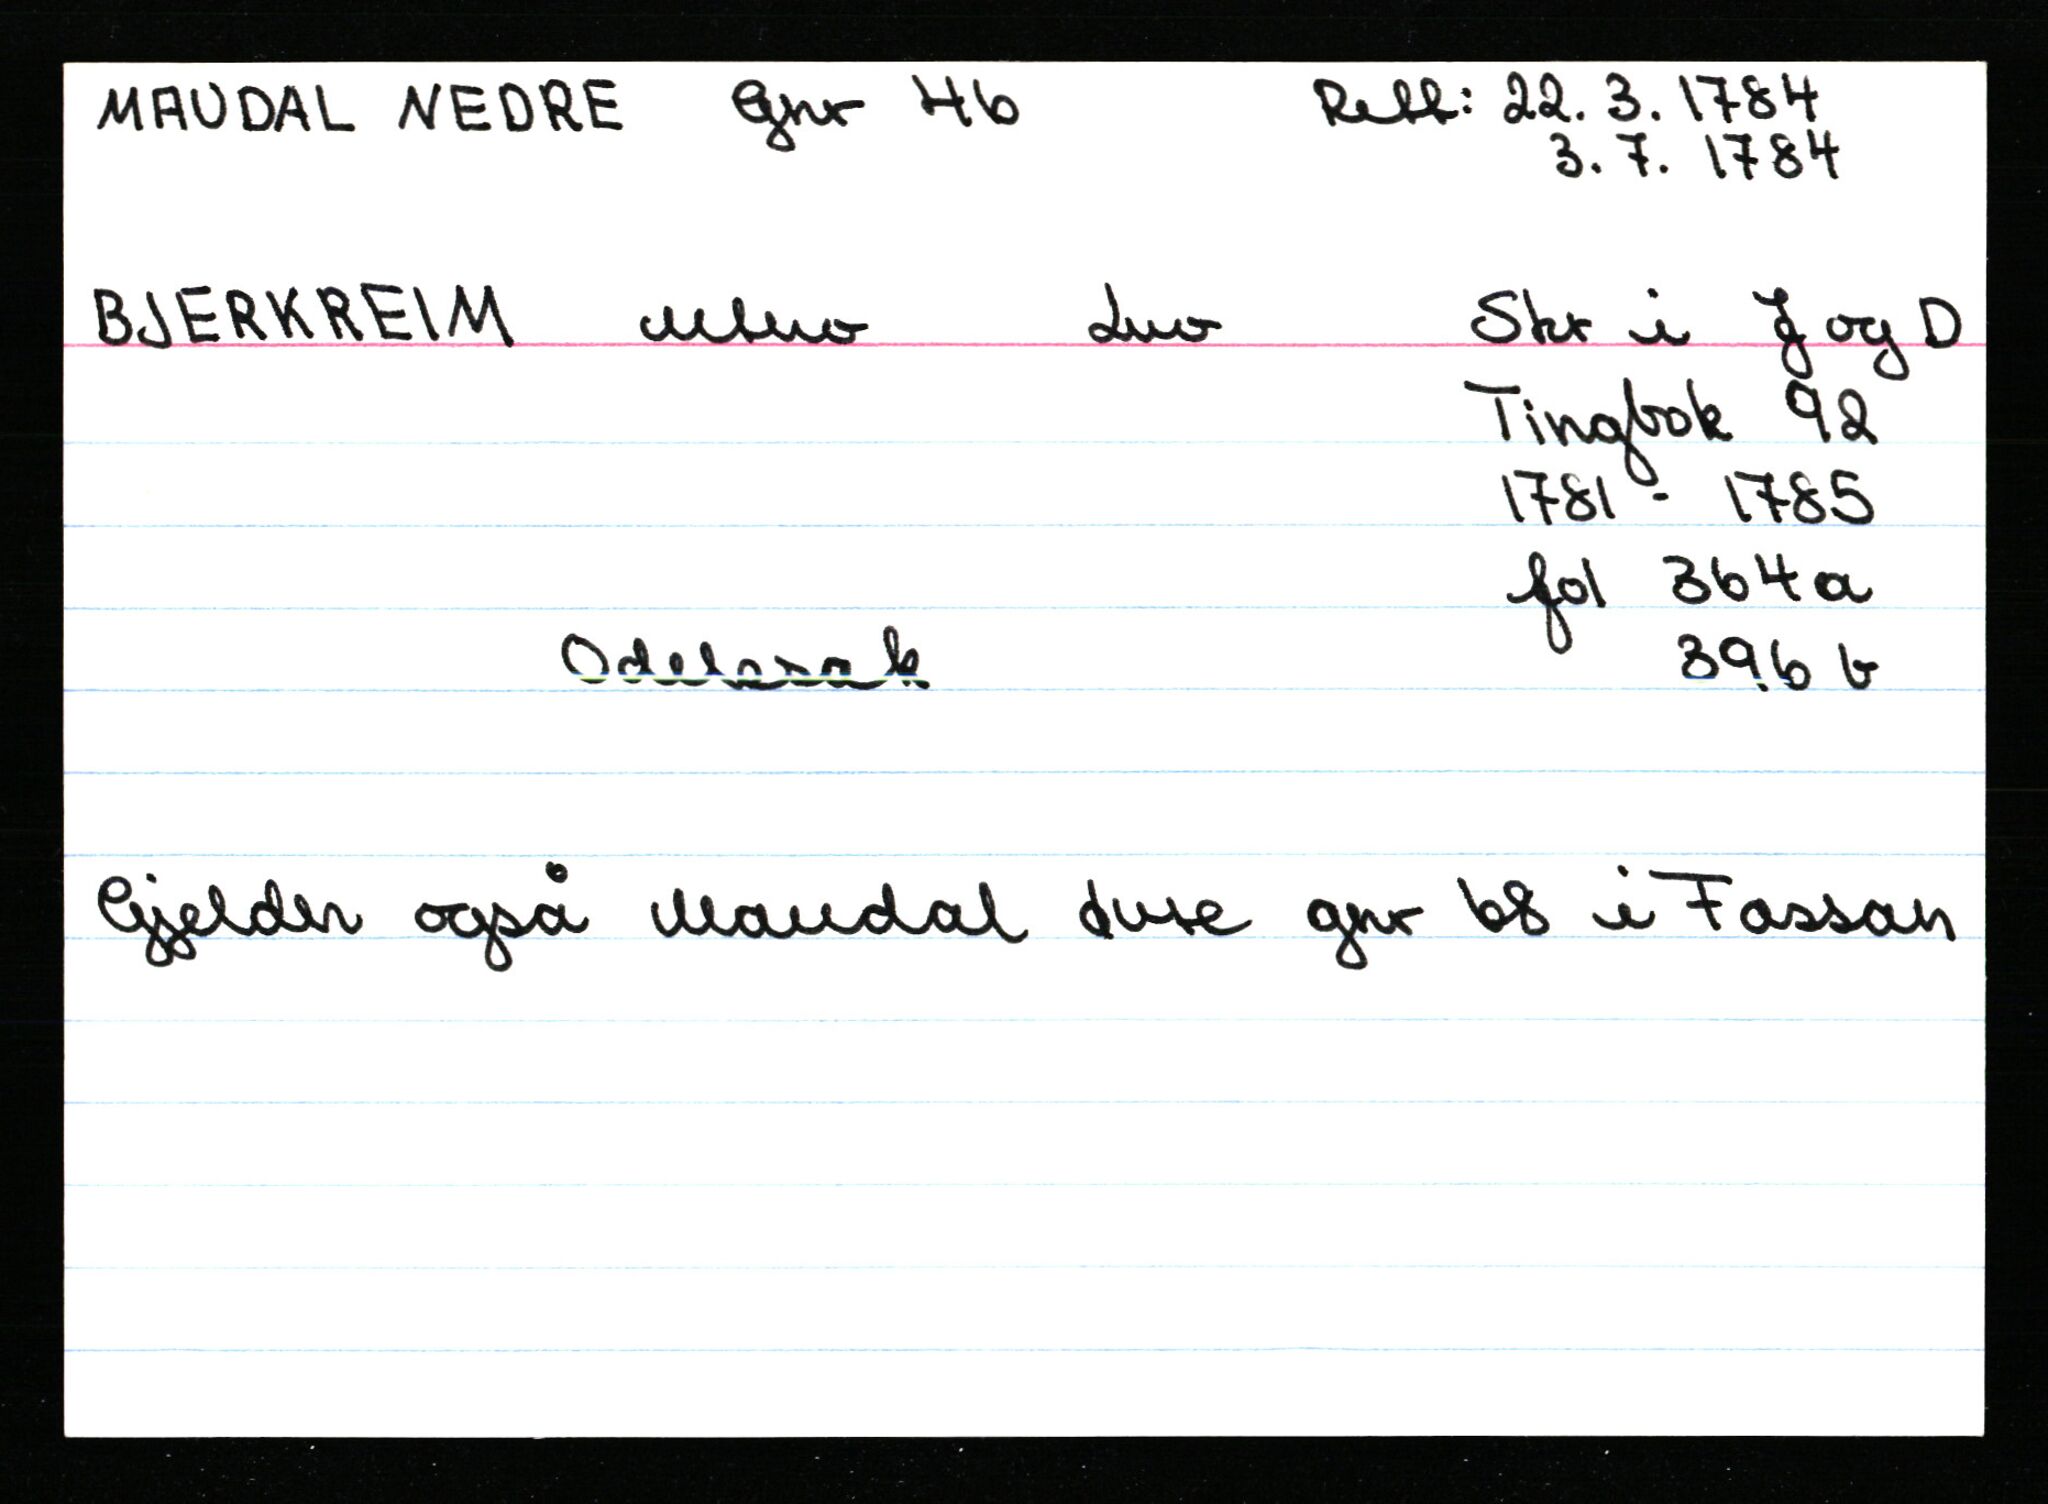 MAUDAL NEDRE Gnr 46 Rett: 22. 3. 1784
3. 7. 1784
BJERKREIM Skr i J og D
Tingbok 92
1781 - 1785
fol 364a
Odelssak 396 b
Gjelder også Maudal gnr 68 i Fossan